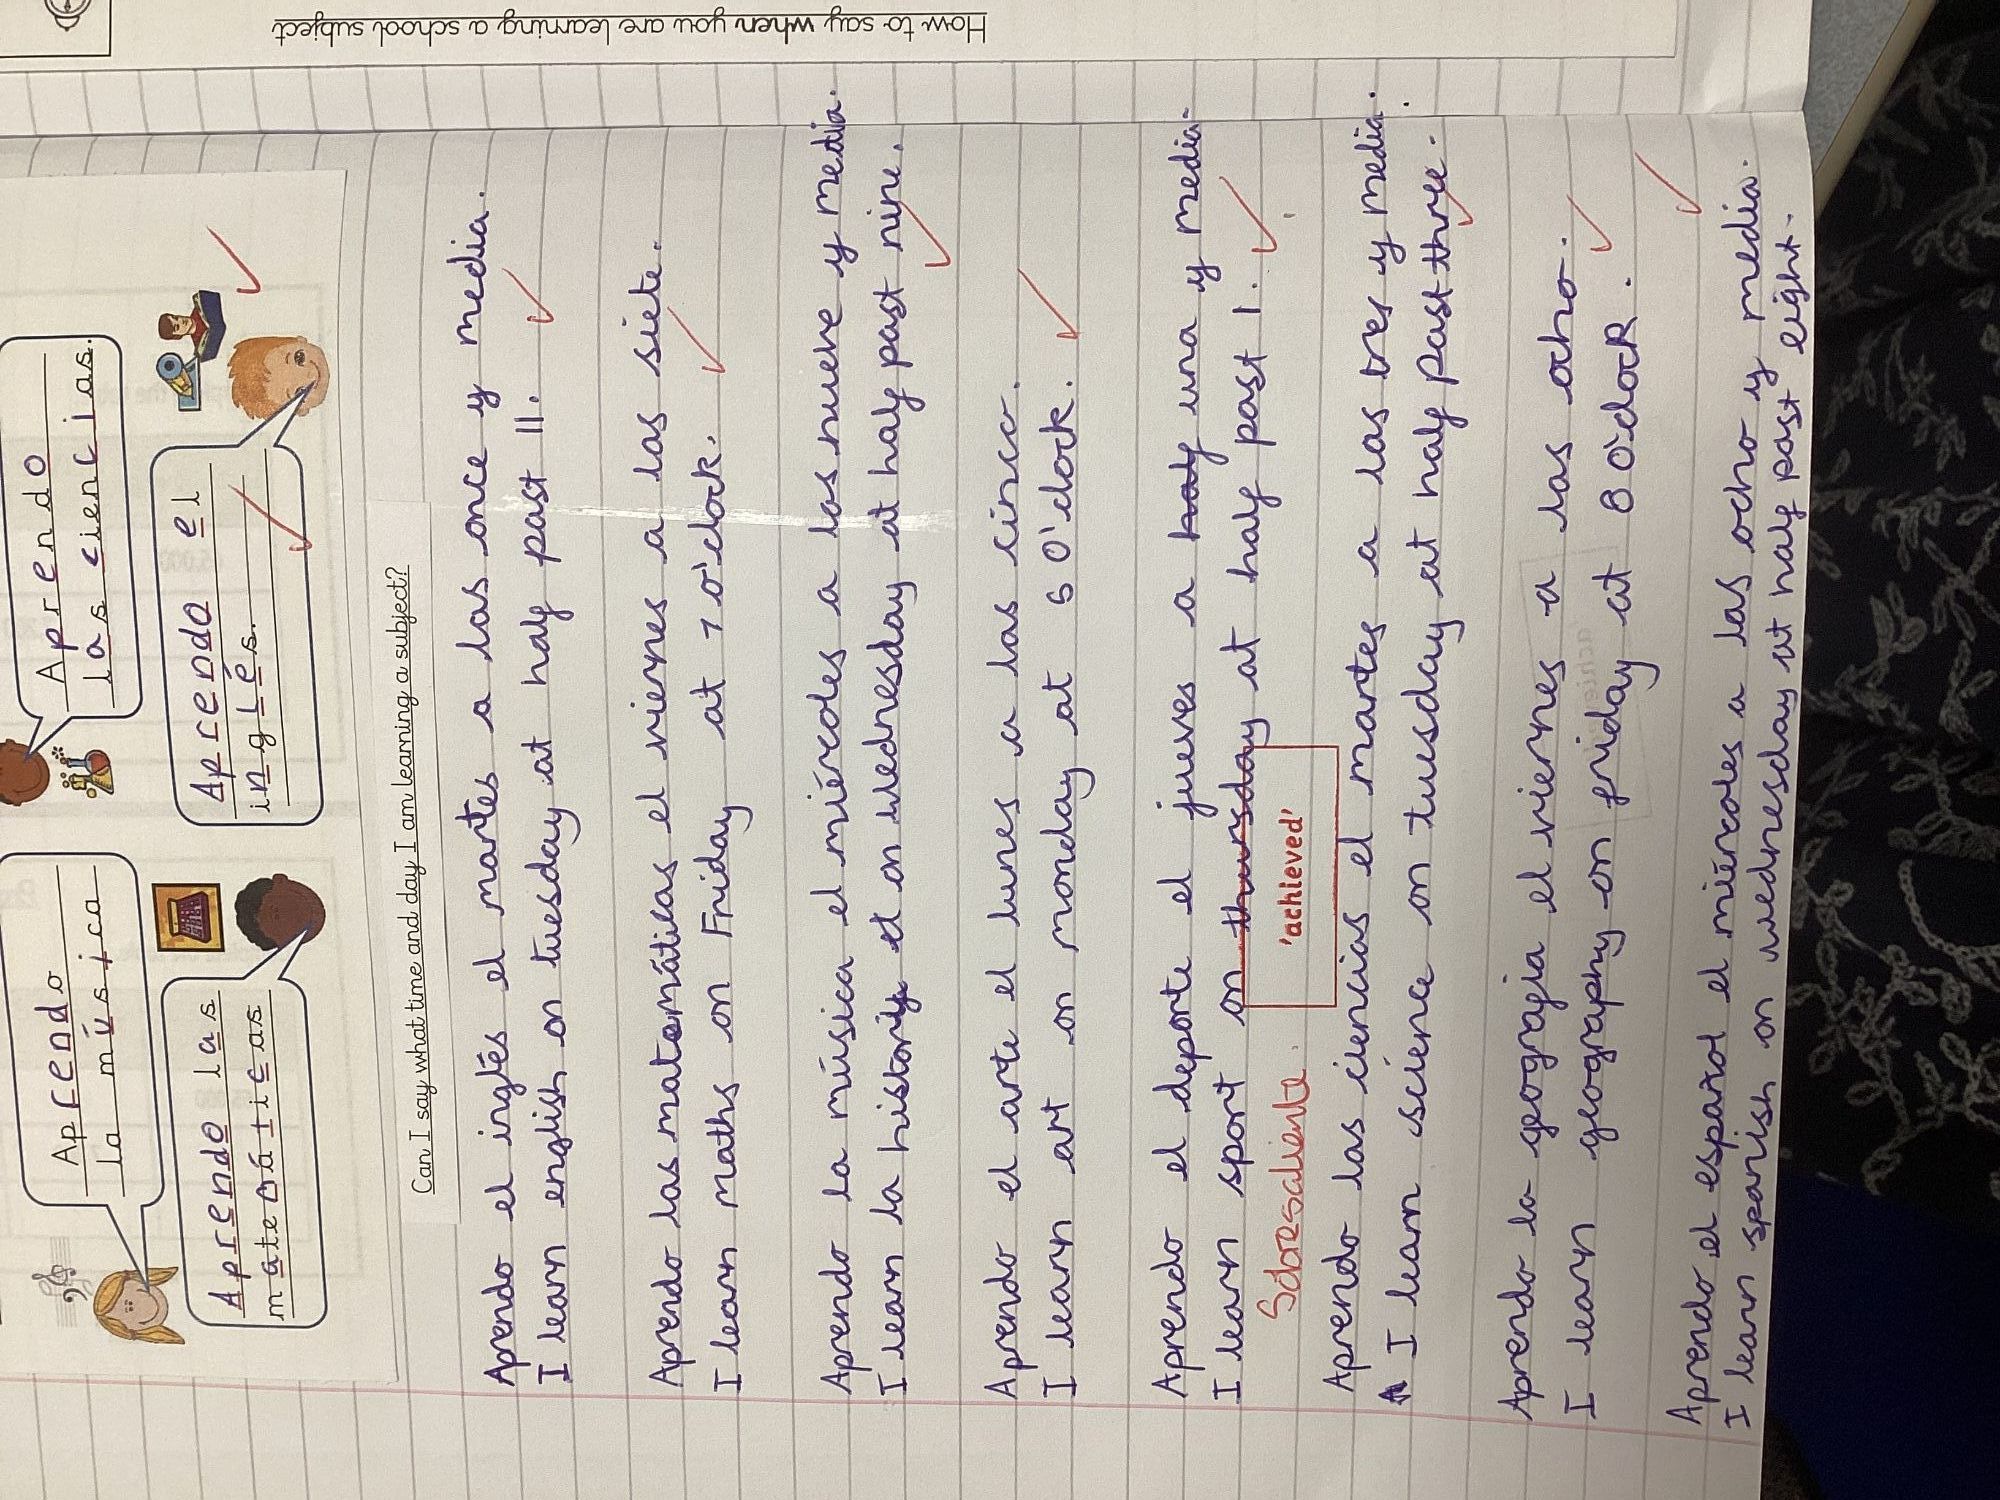 How to say when you are learning a school subject
Aprendo
la música
Aprendo
las ciencias.
Aprendo las
matemáticas
Aprendo el
inglés.
Can I say what time and day I am learning a subject?
Aprendo el inglés el martes a las once y media.
I learn english on tuesday at half past 11.
Aprendo las matemáticas el viernes a las siete.
I learn maths on Friday at 7 o'clock.
Aprendo la música el miércoles a las nueve y media.
I learn la history on wednesday at half past nine.
Aprendo el arte el lunes a las cinco.
I learn art on monday at 5 O'clock.
Aprendo el deporte el jueves a una y media
I learn sport on thursday at half past 1.
Sobresaliente
'achieved'
Aprendo las ciencias el martes a las tres y media.
I learn science on tuesday at half past three.
Aprendo la geografia el viernes a las ocho.
I learn geography on friday at 8 O'clock.
Aprendo el español el miércoles a las ocho y media.
I learn spanish on wednesday at half past eight.